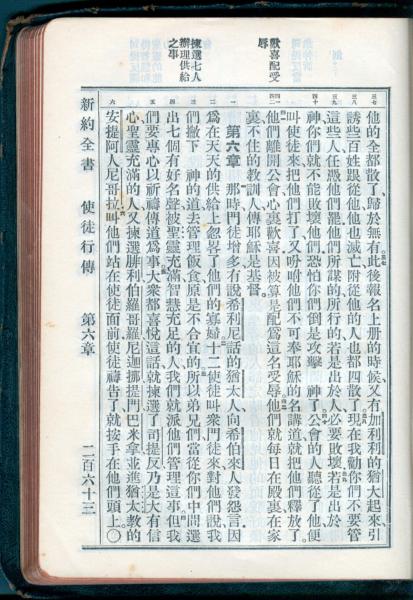 歡喜配受
辱
揀選七人
辦理供給
之事
三七
他的全都散了、歸於無有、此後報名上册的時候、又有加利利的猶大起來引
三八
誘些百姓跟從他、他也滅亡、附從他的人也都四散了、現在我勸你們不要管
三九
這些人、任憑他們罷、他們所謀的所行的、若是出於人、必要敗壞、若是出於
四十
神、你們就不能敗壞他們、恐怕你們倒是攻擊 神了、公會的人聽從了他、便
叫使徒來、把他們打了、又吩咐他們不可奉耶穌的名講道、就把他們釋放了。
四一
四二
他們離開公會、心裏歡喜、因被算是配爲這名受辱、他們就每日在殿裏、在家
裏、不住的教訓人、傳耶穌是基督。
一
第六章 那時門徒增多、有說希利尼話的猶太人、向希伯來人發怨言、因
二
爲在天天的供給上忽畧了他們的寡婦、十二使徒叫衆門徒來、對他們說、我
三
們撇下 神的道、去管理飯食、原是不合宜的、所以弟兄們、當從你們中間選
四
出七個有好名聲、被聖靈充滿、智慧充足的人、我們就派他們管理這事、但我
五
們要專心以祈禱傳道爲事、大衆都喜悅這話、就揀選了司提反、乃是大有信
心聖靈充滿的人、又揀腓利、伯羅哥羅、尼迦挪、提門、巴米拿、並進猶太教的
六
安提阿人尼哥拉、叫他們站在使徒面前、使徒禱告了、就按手在他們頭上。○
新約全書 使徒行傳 第六章 二百六十三